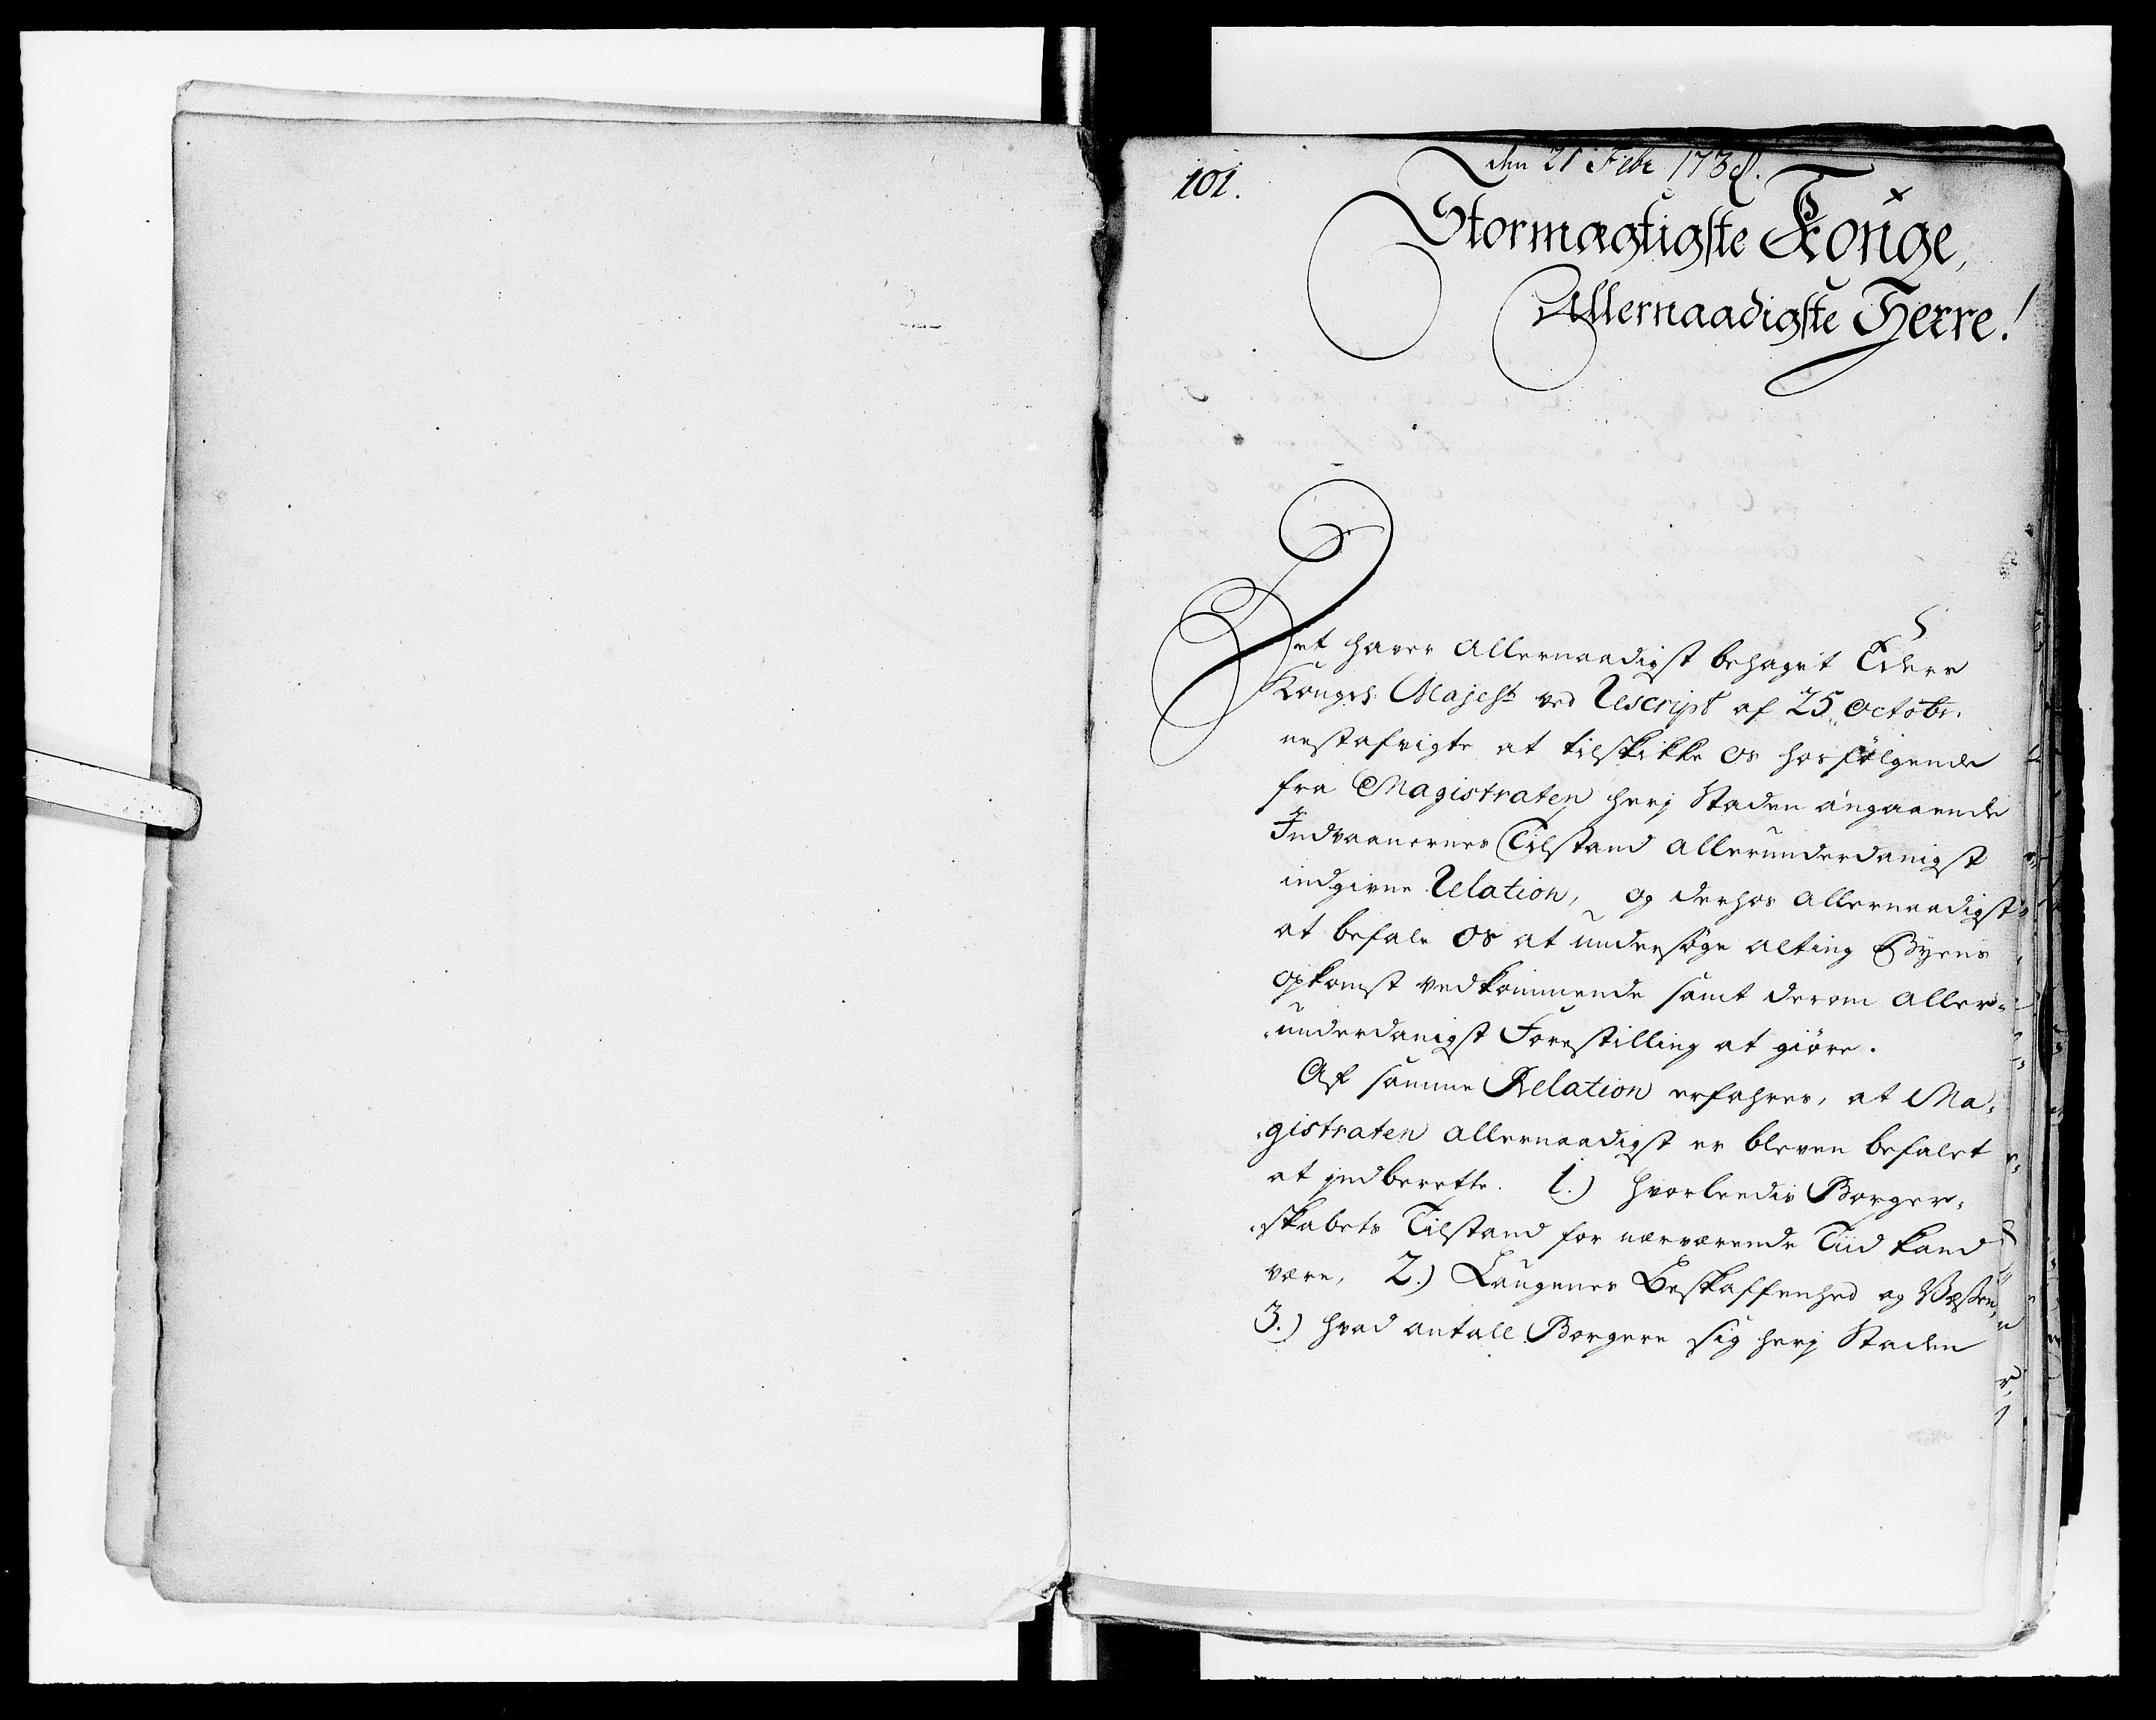 101.
den 21 Febr 1738.
Stormægtigste Konge,
Allernaadigste Herre!
Det haver Allernaadigst behaget Eders
Kongel: Majest: ved Rescript af 25 Octobr.
nestafvigte at tilskikke os hosfölgende
fra Magistraten herj Staden angaaende
Indvaanernes Tilstand allerunderdanigst
indgivne Relation, og derhos Allernaadigst
at befale os at undersöge alting Byens
opkomst vedkommende samt derom aller-
underdanigst Forestilling at giöre.
Af samme Relation erfahres, at Ma-
gistraten allernaadigst er bleven befalet
at jndberette. 1.) hvorleedis Borger-
skabets Tilstand for nærværende Tiid kand
være, 2.) Laugenes Beskaffenhed og Væsen,
3.) hvad antall Borgere sig herj Staden